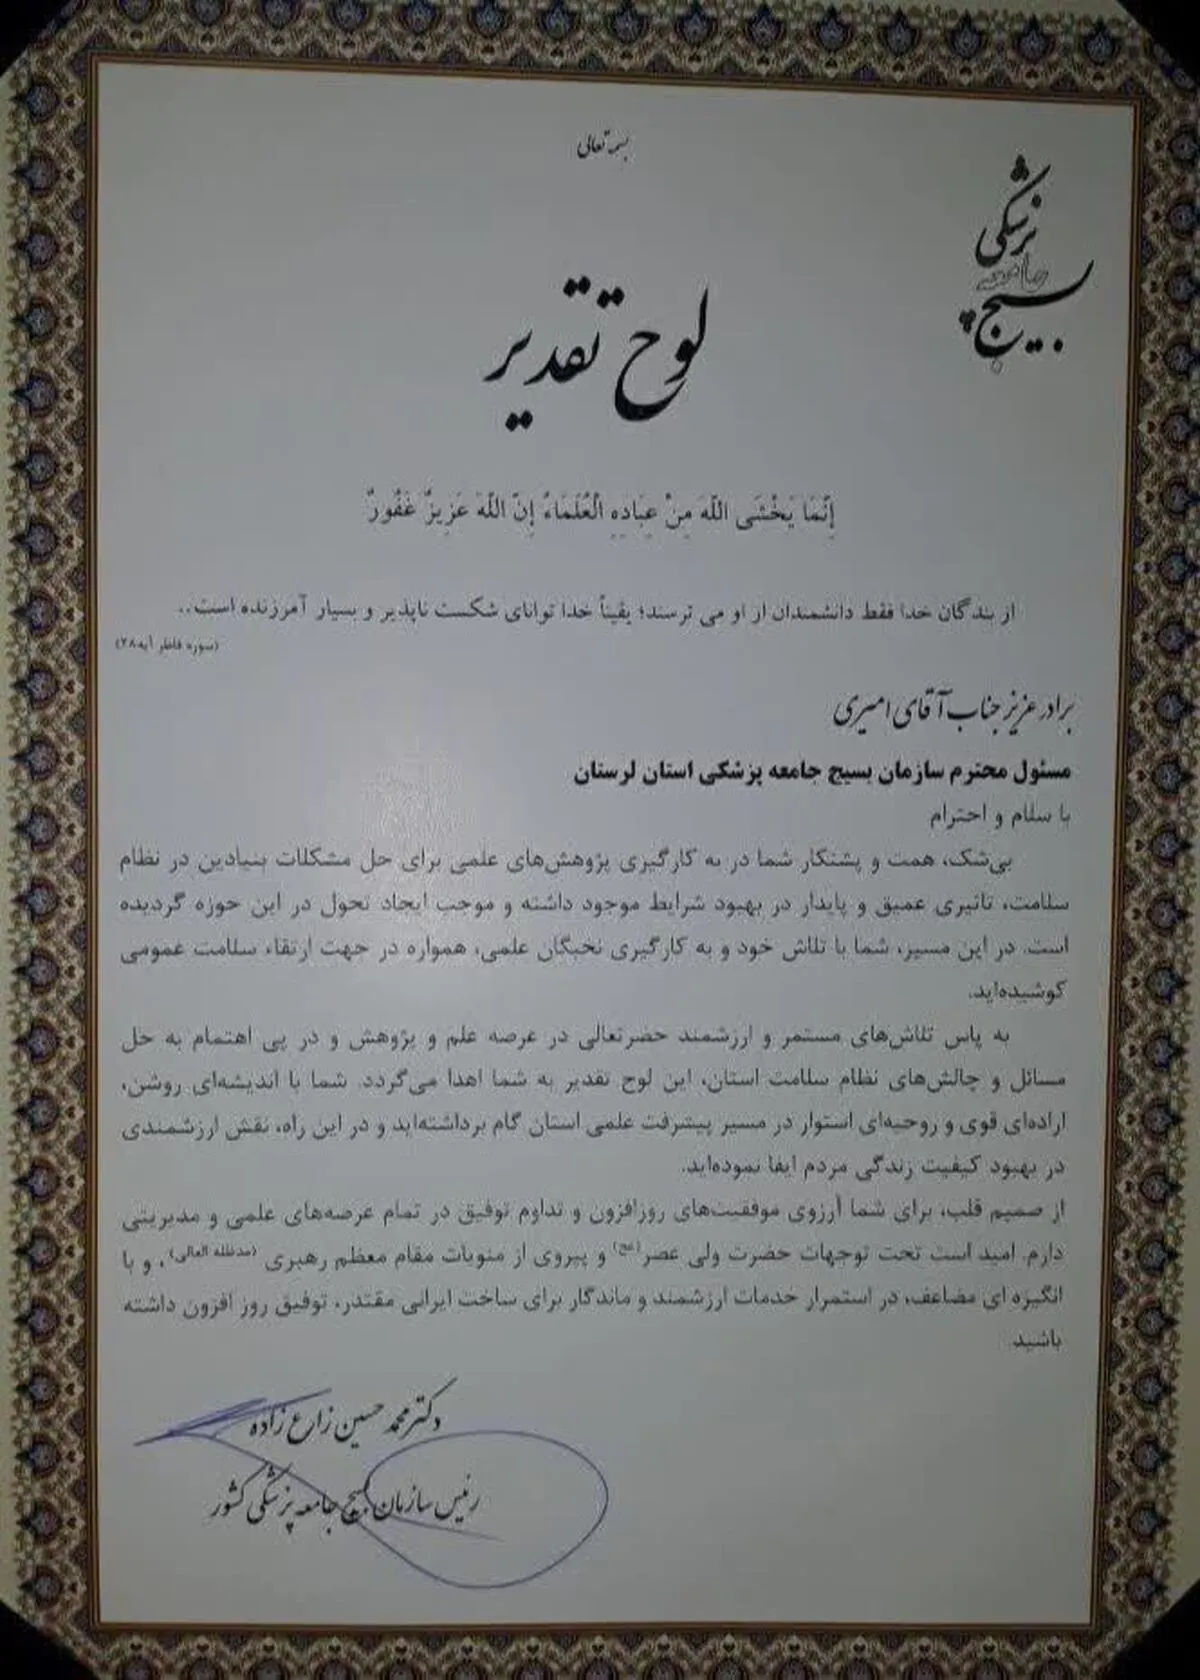 بسمه تعالی
بسیج جامعه پزشکی
لوح تقدیر
إِنَّمَا يَخْشَى اللَّهَ مِنْ عِبَادِهِ الْعُلَمَاءُ إِنَّ اللَّهَ عَزِيزٌ غَفُورٌ
از بندگان خدا فقط دانشمندان از او می ترسند؛ یقیناً خدا توانای شکست ناپذیر و بسیار آمرزنده است..
(سوره فاطر آیه۲۸)
برادر عزیز جناب آقای امیری
مسئول محترم سازمان بسیج جامعه پزشکی استان لرستان
با سلام و احترام
بی‌شک، همت و پشتکار شما در به کارگیری پژوهش‌های علمی برای حل مشکلات بنیادین در نظام
سلامت، تاثیری عمیق و پایدار در بهبود شرایط موجود داشته و موجب ایجاد تحول در این حوزه گردیده
است. در این مسیر، شما با تلاش خود و به کارگیری نخبگان علمی، همواره در جهت ارتقاء سلامت عمومی
کوشیده‌اید.
به پاس تلاش‌های مستمر و ارزشمند حضرتعالی در عرصه علم و پژوهش و در پی اهتمام به حل
مسائل و چالش‌های نظام سلامت استان، این لوح تقدیر به شما اهدا می‌گردد. شما با اندیشه‌ای روشن،
اراده‌ای قوی و روحیه‌ای استوار در مسیر پیشرفت علمی استان گام برداشته‌اید و در این راه، نقش ارزشمندی
در بهبود کیفیت زندگی مردم ایفا نموده‌اید.
از صمیم قلب، برای شما آرزوی موفقیت‌های روزافزون و تداوم توفیق در تمام عرصه‌های علمی و مدیریتی
دارم. امید است تحت توجهات حضرت ولی عصر(عج) و پیروی از منویات مقام معظم رهبری (مدظله العالی)، و با
انگیزه ای مضاعف، در استمرار خدمات ارزشمند و ماندگار برای ساخت ایرانی مقتدر، توفیق روز افزون داشته
باشید.
دکتر محمد حسین زارع زاده
رئیس سازمان بسیج جامعه پزشکی کشور